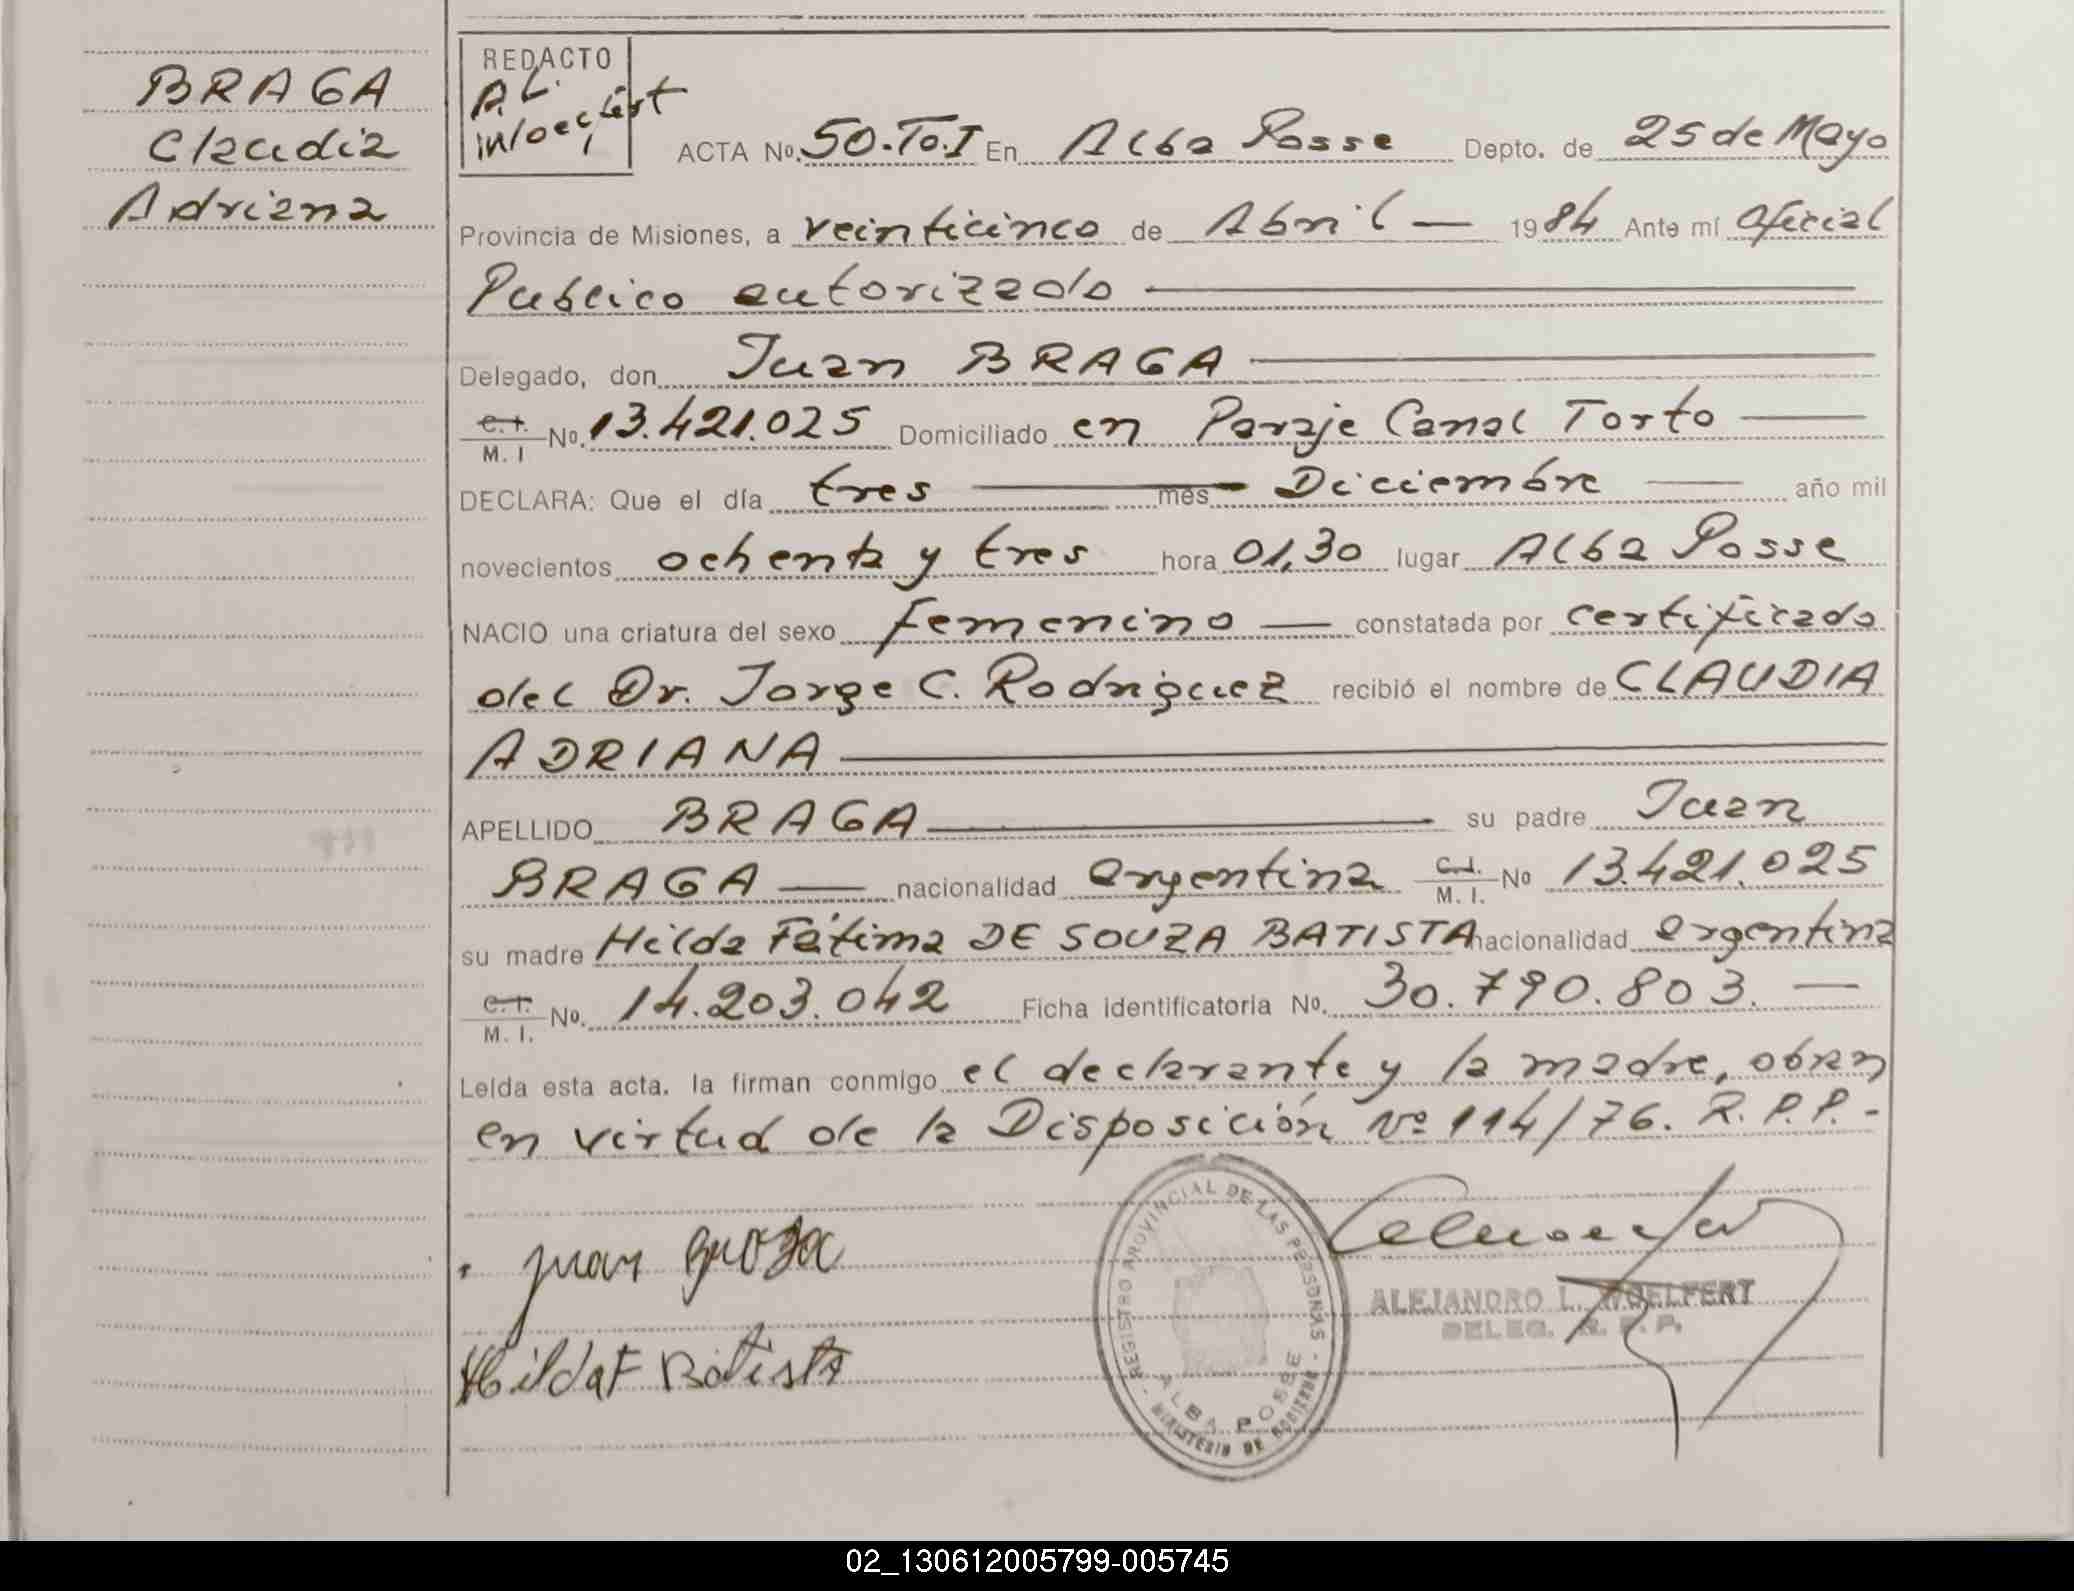 BRAGA
Claudia
Adriana
REDACTO
A. L.
ACTA No. 50. To. I En Alba Posse Depto. de 25 de Mayo
Provincia de Misiones, a veinticinco de Abril — 1984 Ante mí Oficial
Publico autorizado
Delegado, don Juan BRAGA
C. I. / M. I No. 13.421.025 Domiciliado en Paraje Canal Torto
DECLARA: Que el día tres mes Diciembre año mil
novecientos ochenta y tres hora 01,30 lugar Alba Posse
NACIO una criatura del sexo femenino — constatada por certificado
del Dr. Jorge C. Rodriguez recibió el nombre de CLAUDIA
ADRIANA
APELLIDO BRAGA su padre Juan
BRAGA — nacionalidad argentina C.I. / M. I. No 13.421.025
su madre Hilda Fátima DE SOUZA BATISTA nacionalidad argentina
C. I. / M. I. No. 14.203.042 Ficha identificatoria No. 30.790.803. —
Leida esta acta. la firman conmigo el declarante y la madre, obran
en virtud de la Disposición Nº 114/76. R. P. P. -
REGISTRO PROVINCIAL DE LAS PERSONAS - MINISTERIO DE GOBIERNO -
ALBA POSSE
Juan
Hilda F Batista
ALEJANDRO L. WOELFERT
DELEG. R. P. P.
02_130612005799-005745